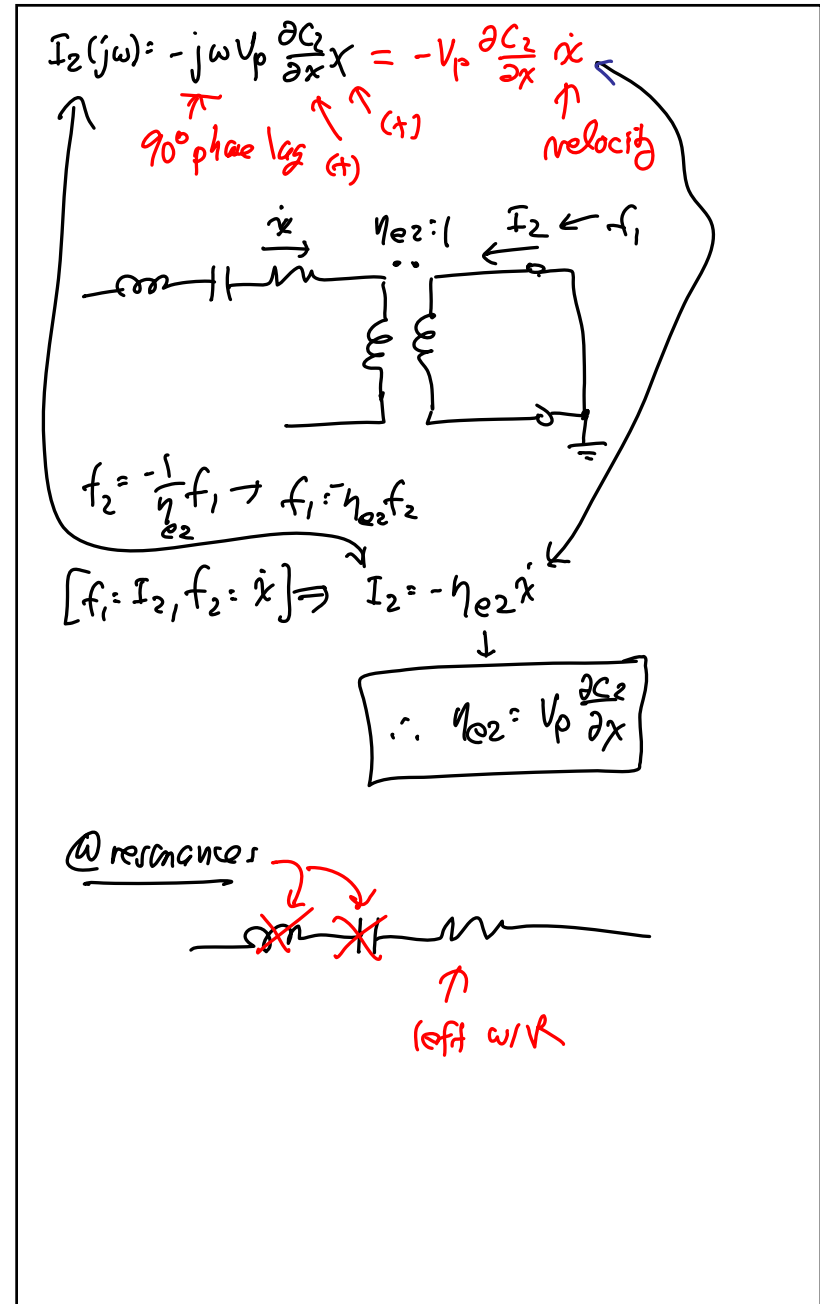 I₂(jω) = -jωVₚ ∂C₂/∂x X = -Vₚ ∂C₂/∂x ẋ
90° phase lag (+) (+) velocity
ẋ ηe2:1 I₂ ← f₁
f₂ = -1/ηe2 f₁ → f₁ = -ηe2 f₂
[f₁ = I₂, f₂ = ẋ] ⇒ I₂ = -ηe2 ẋ
∴ ηe2 = Vₚ ∂C₂/∂x
@ resonances
left w/ R